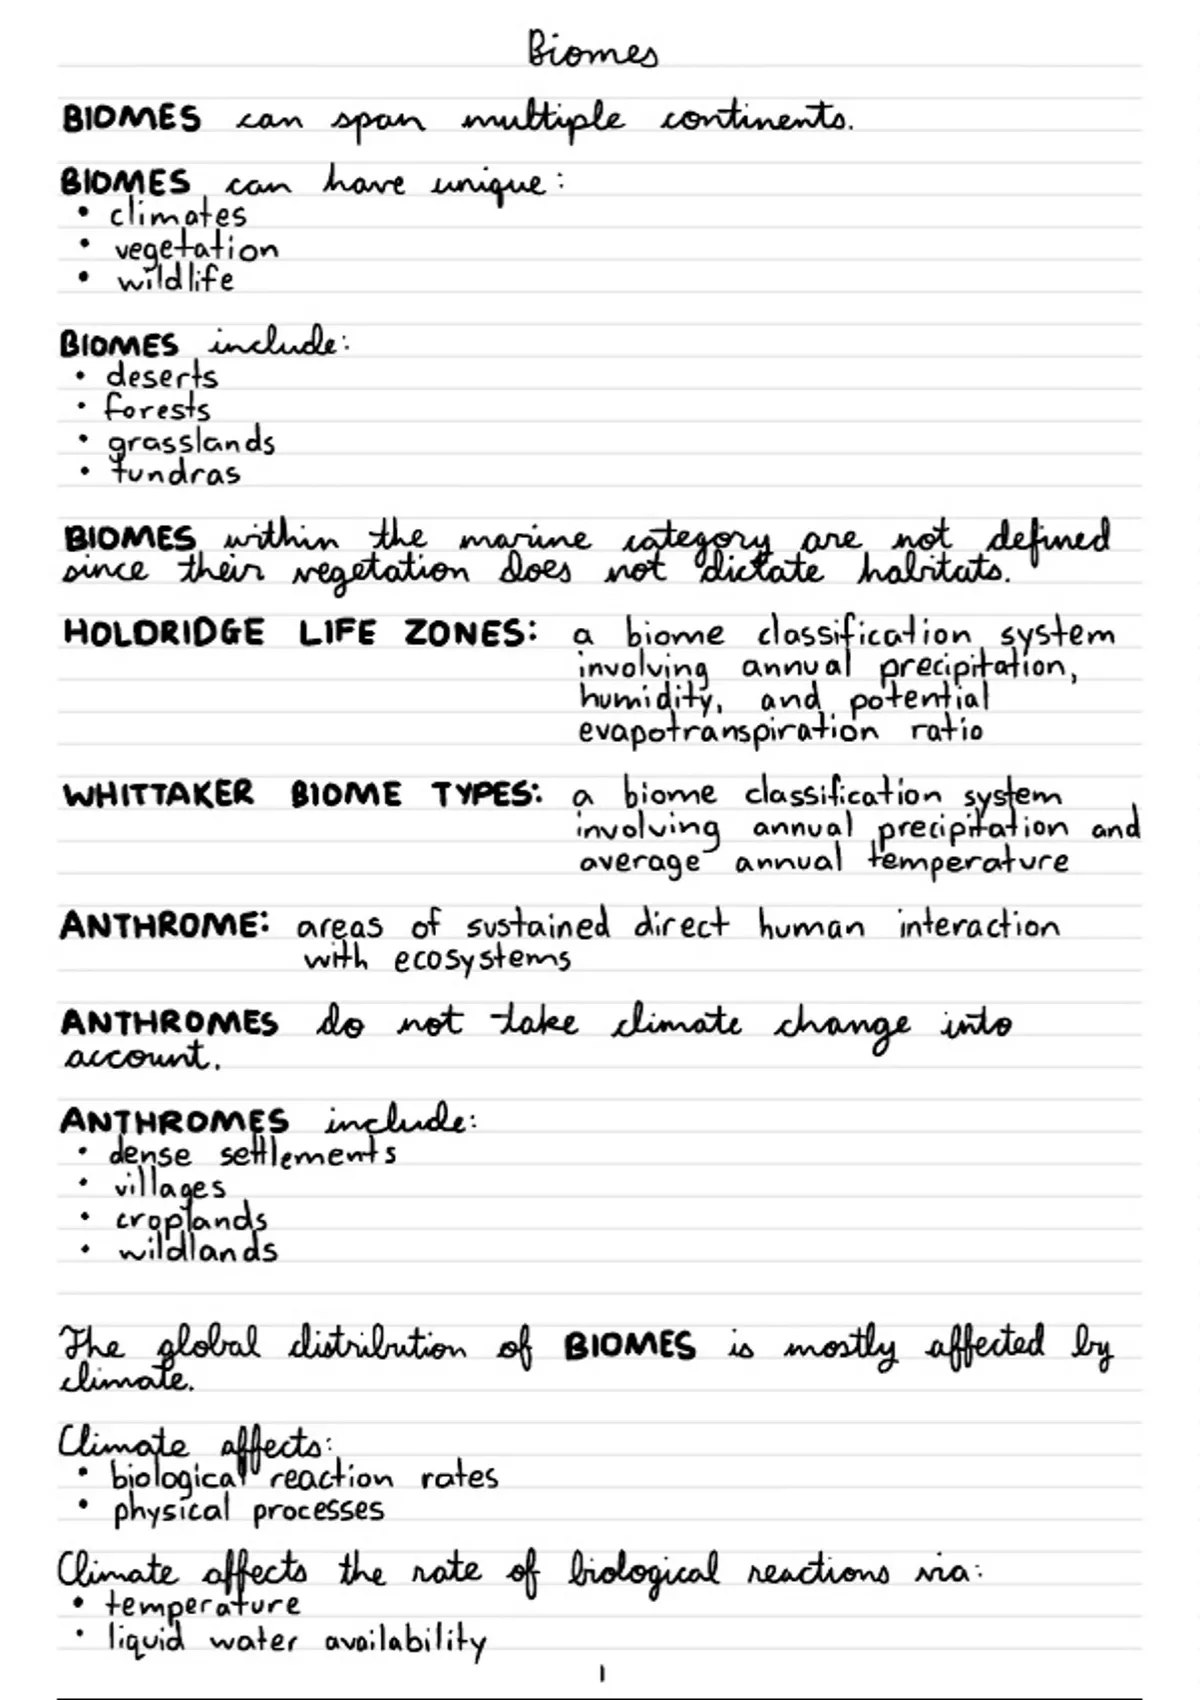 Biomes
BIOMES can span multiple continents.
BIOMES can have unique:
• climates
• vegetation
• wildlife
BIOMES include:
• deserts
• forests
• grasslands
• tundras
BIOMES within the marine category are not defined
since their vegetation does not dictate habitats.
HOLDRIDGE LIFE ZONES: a biome classification system
involving annual precipitation,
humidity, and potential
evapotranspiration ratio
WHITTAKER BIOME TYPES: a biome classification system
involving annual precipitation and
average annual temperature
ANTHROME: areas of sustained direct human interaction
with ecosystems
ANTHROMES do not take climate change into
account.
ANTHROMES include:
• dense settlements
• villages
• croplands
• wildlands
The global distribution of BIOMES is mostly affected by
climate.
Climate affects:
• biological reaction rates
• physical processes
Climate affects the rate of biological reactions via:
• temperature
• liquid water availability
1